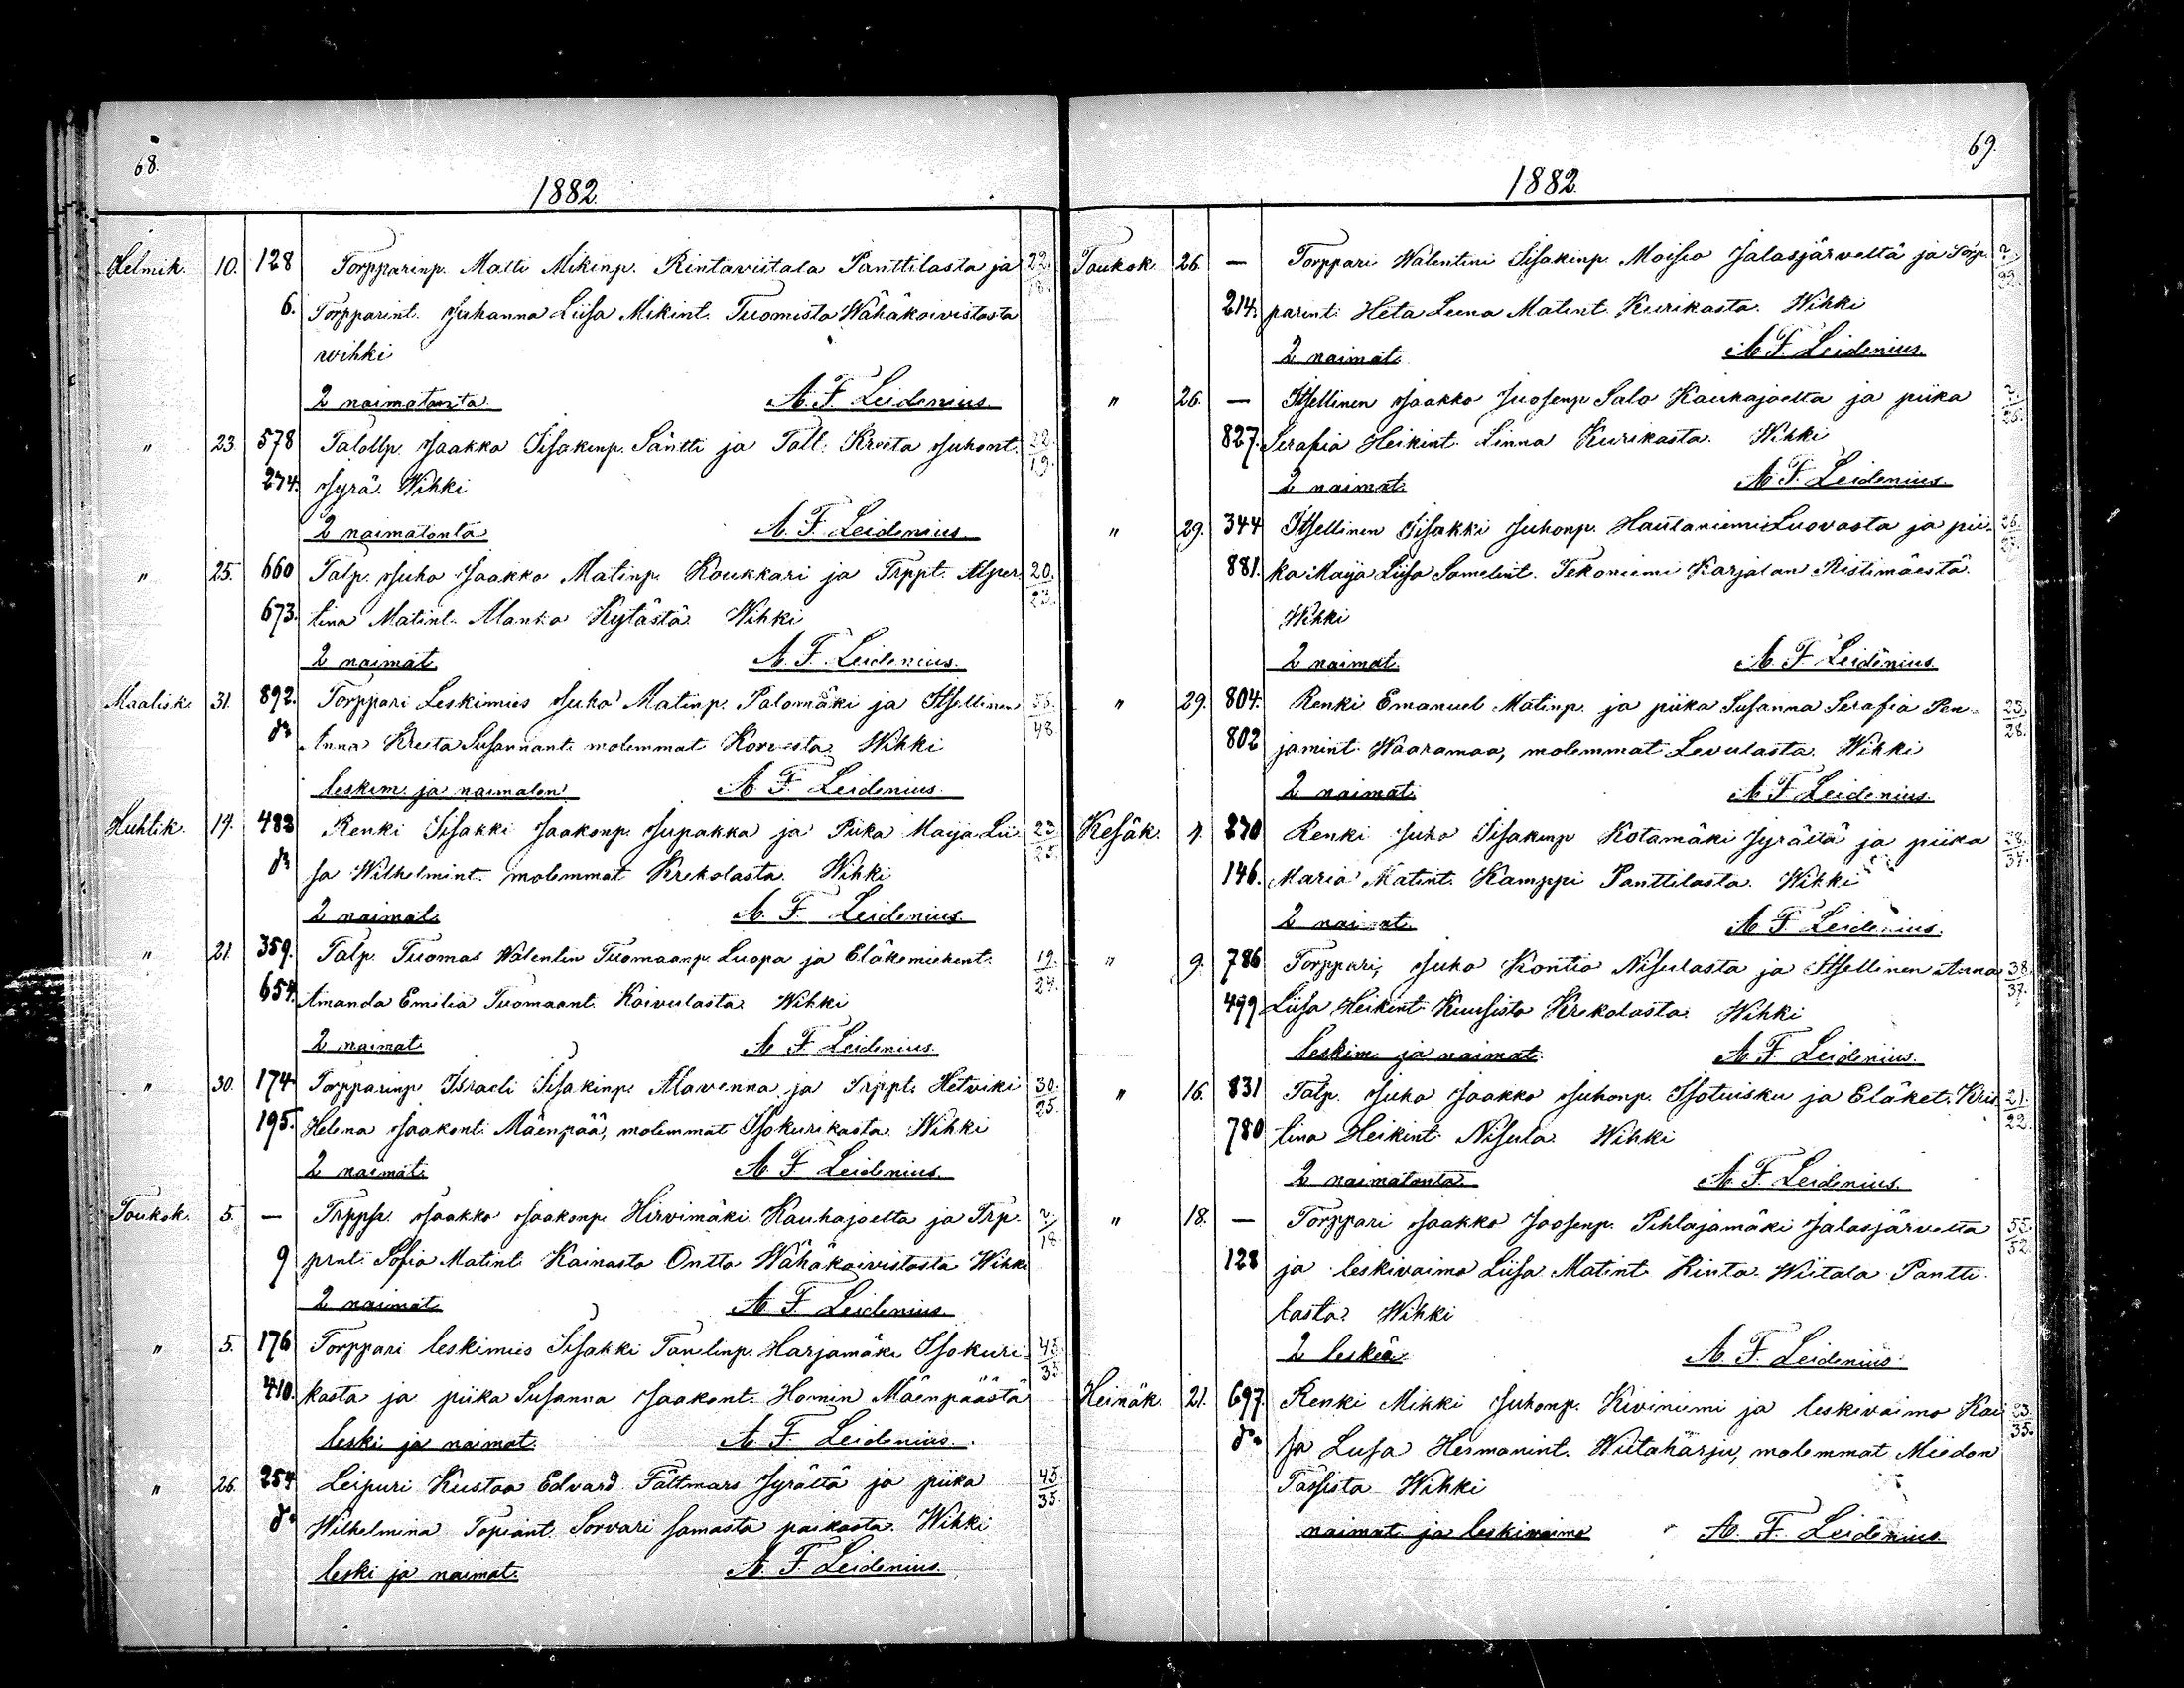 68.
1882.
Helmik. 10. 128 Torpparinp. Matti Mikinp. Rintaviitala Panttilasta ja 22.
6. Torpparint. Juhanna Liisa Mikint. Tuomista Wähäkoivistosta
wihki
2 naimatonta. A. F. Leidenius.
" 23. 578 Talollp. Jaakko Iisakinp. Säntti ja Tall. Kreeta Juhont. 22./19.
274. Jyrä. Wihki
2 naimatonta A. F. Leidenius.
" 25. 660 Talp. Juho Jaakko Matinp. Koukkari ja Trppt. Alper- 20./23.
673. tina Matint. Alanko Kytästä. Wihki
2 naimat. A. F. Leidenius.
Maalisk. 31. 892. Torppari Leskimies Juho Matinp. Palomäki ja Itsellinen 48
do Anna Kreeta Susannant. molemmat Korvesta. Wihki
leskim. ja naimaton A. F. Leidenius.
Huhtik. 14. 483 Renki Iisakki Jaakonp. Jupakka ja Piika Maija Lii- 23/25.
do sa Wilhelmint. molemmat Krekolasta. Wihki
2 naimat. A. F. Leidenius.
" 21. 359. Talp. Tuomas Walentin Tuomaanp. Luopa ja Eläkemiehent. 19./24.
654. Amanda Emilia Tuomaant. Koivulasta. Wihki
2 naimat. A. F. Leidenius.
" 30. 174 Torpparinp. Israeli Iisakinp. Alavenna ja Trppt. Hetviki 30./25.
195. Helena Jaakont. Mäenpää, molemmat Isokurikasta. Wihki
2 naimat. A. F. Leidenius.
Toukok. 5. — Trppr. Jaakko Jaakonp. Hirvimäki Kauhajoelta ja Trp- ?/18
9 prnt. Sofia Matint. Kainasto Ontto Wähäkoivistosta Wihki
2 naimat. A. F. Leidenius.
" 5. 176 Torppari leskimies Iisakki Tanelinp. Harjamäki Isokuri- 45./35.
410. kasta ja piika Susanna Jaakont. Homin Mäenpäästä
leski ja naimat. A. F. Leidenius.
" 26. 254 Leipuri Kustaa Edvard Fältmars Jyrältä ja piika 45./35.
do Wilhelmina Topiant. Sorvari samasta paikasta. Wihki
leski ja naimat. A. F. Leidenius.
69.
1882.
Toukok. 26. — Torppari Walentini Iisakinp. Moisio Jalasjärveltä ja Torp- ?
214. parint. Heta Leena Matint. Kurikasta. Wihki
2 naimat. A. F. Leidenius.
" 26. — Itsellinen Jaakko Juosenp. Salo Kauhajoelta ja piika
827. Serafia Heikint. Linna Kurikasta. Wihki
2 naimat. A. F. Leidenius.
" 29. 344 Itsellinen Iisakki Juhonp. Hautaniemi Luovasta ja pii-
881. ka Maija Liisa Samelint. Tekoniemi Karjalan Ristimäestä.
Wihki
2 naimat. A. F. Leidenius.
" 29. 804. Renki Emanuel Matinp. ja piika Susanna Serafia Pen- 23./28.
802 jamint. Waaramaa, molemmat Levulasta. Wihki
2 naimat. A. F. Leidenius.
Kesäk. 4. 270 Renki Juho Iisakinp Kotamäki Jyrältä ja piika
146. Maria Matint. Kamppi Panttilasta. Wihki
2 naimat. A. F. Leidenius.
" 9. 786 Torppari, Juho Kontio Nisulasta ja Itsellinen Anna 38./37.
499 Liisa Heikint. Kuusisto Krekolasta. Wihki
leskim. ja naimat. A. F. Leidenius.
" 16. 831 Talp. Juho Jaakko Juhonp. Isotuisku ja Eläket. Kris- 21./22.
780 tina Heikint. Nisula. Wihki
2 naimatonta. A. F. Leidenius.
" 18. — Torppari Jaakko Joosenp. Pihlajamäki Jalasjärveltä 55./52.
128 ja leskivaimo Liisa Matint. Rinta-Wiitala Pantti-
lasta. Wihki
2 leskeä. A. F. Leidenius.
Heinäk. 21. 697. Renki Mikki Juhonp. Kiviniemi ja leskivaimo Kai- 23./35.
do sa Lusa Hermanint. Wiitaharju, molemmat Miedon
Tassista Wihki
naimat. ja leskivaimo A. F. Leidenius.